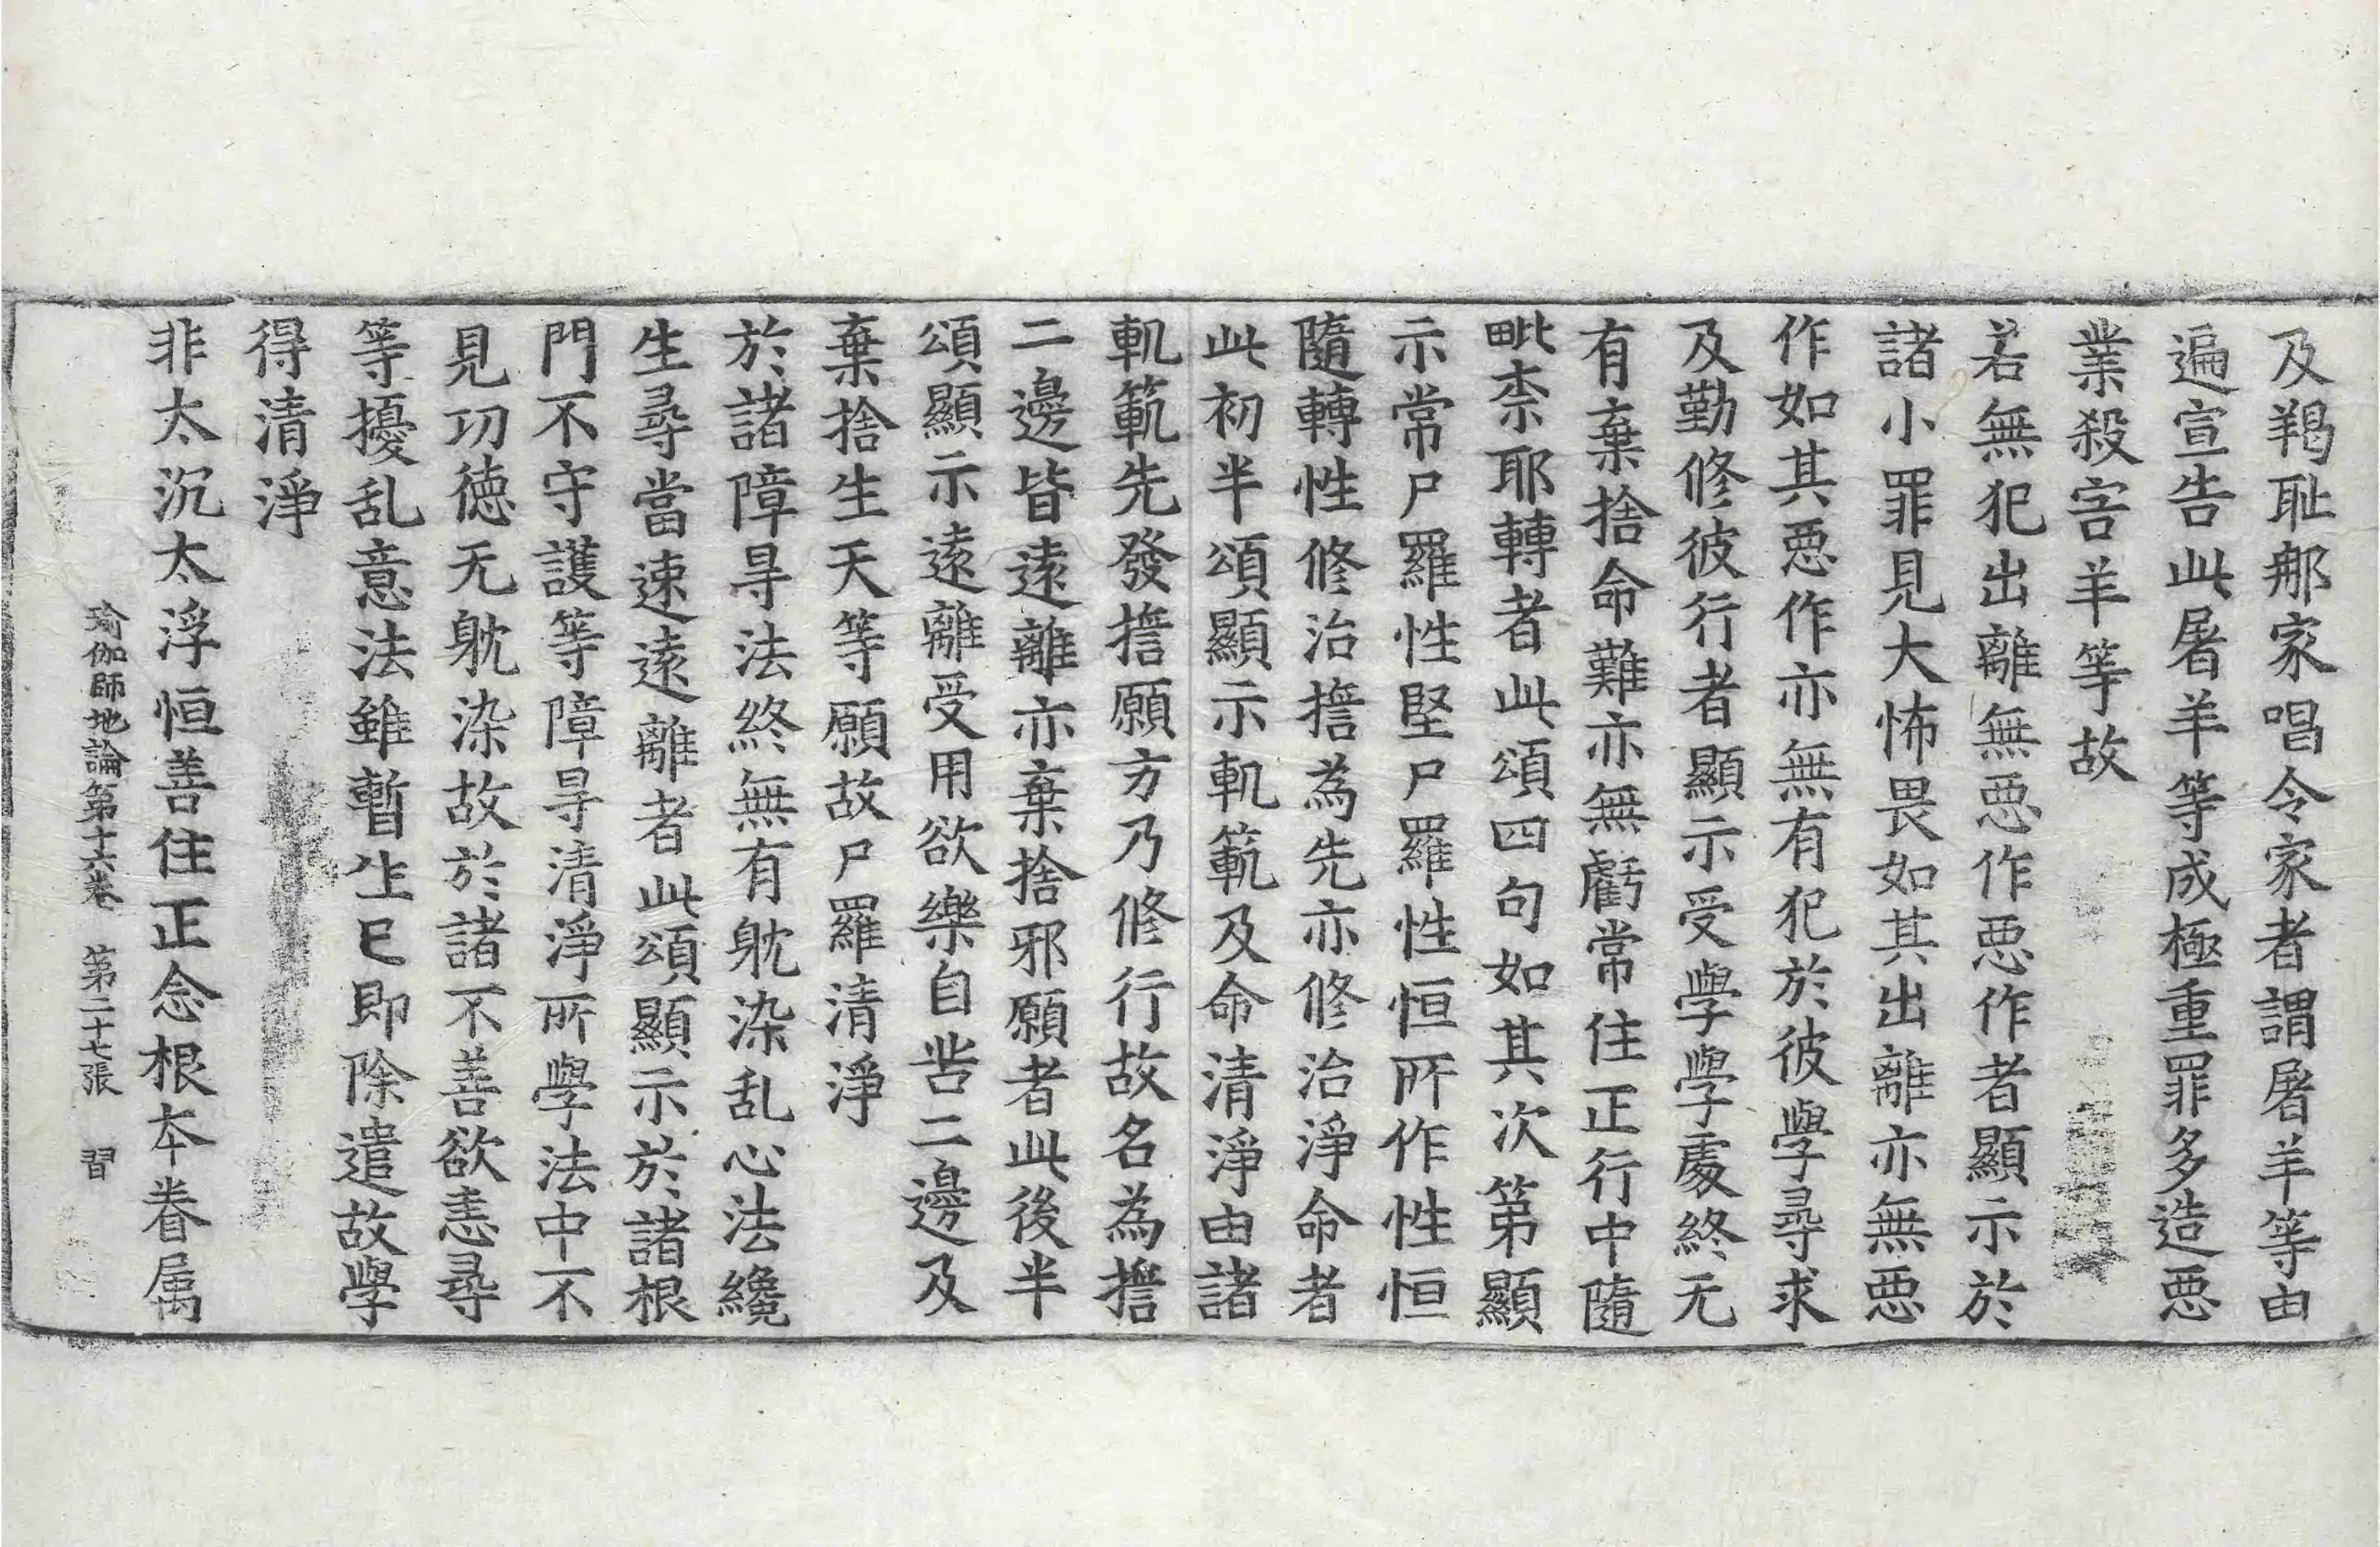 及羯耻那家唱令家者謂屠羊等由
遍宣告此屠羊等成極重罪多造恶
業殺害羊等故
若無犯出離無恶作恶作者顯示於
諸小罪見大怖畏如其出離亦無恶
作如其恶作亦無有犯於彼學尋求
及勤修彼行者顯示受學學處終无
有棄捨命難亦無虧常住正行中隨
毗柰耶轉者此頌四句如其次第顯
示常尸羅性堅尸羅性恒所作性恒
隨轉性修治擔為先亦修治淨命者
此初半頌顯示軌範及命清淨由諸
軌範先發擔願方乃修行故名為擔
二邊皆遠離亦棄捨邪願者此後半
頌顯示遠離受用欲樂自苦二邊及
棄捨生天等願故尸羅清淨
於諸障㝵法終無有躭染乱心法纔
生尋當速遠離者此頌顯示於諸根
門不守護等障㝵清淨所學法中不
見功徳无躭染故於諸不善欲恚尋
等擾乱意法雖暫生已即除遣故學
得清淨
非太沉太浮恒善住正念根本眷属
瑜伽師地論第十六卷 第二十七張 習